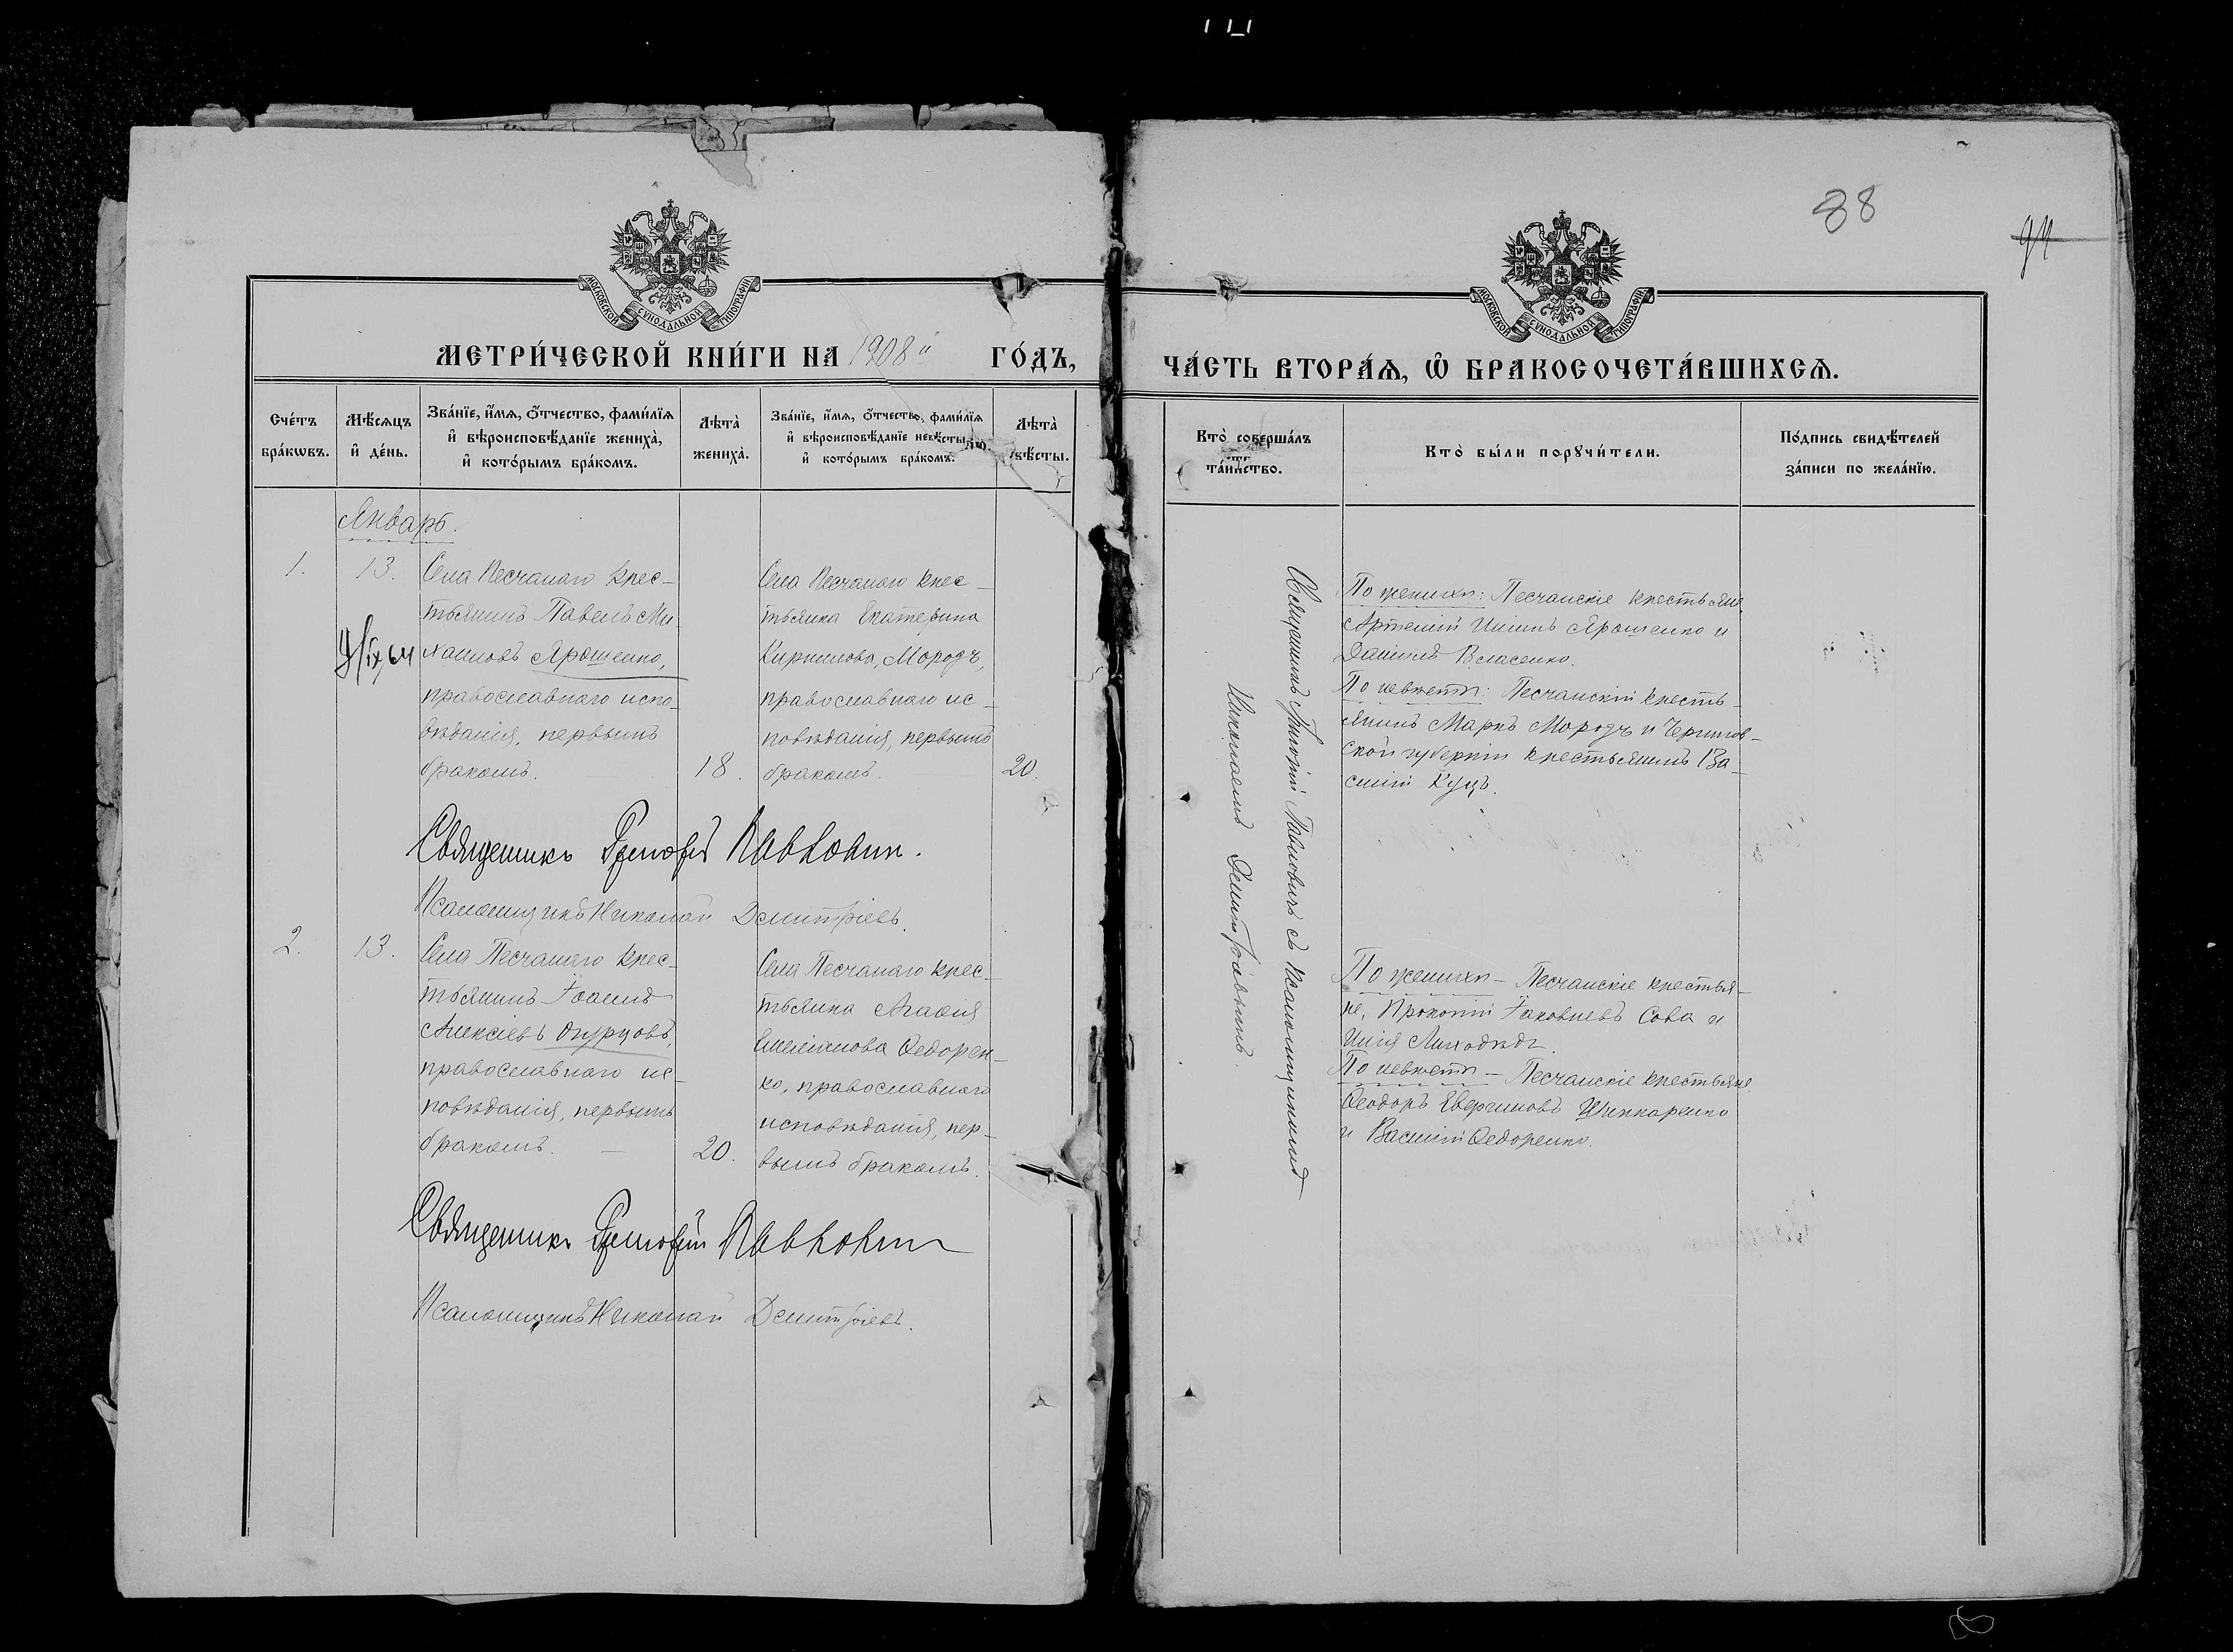 38
94
МОСКОВСКОЙ СѴНОДАЛЬНОЙ ТИПОГРАФІИ
МОСКОВСКОЙ СѴНОДАЛЬНОЙ ТИПОГРАФІИ
МЕТРИ́ЧЕСКОЙ КНИ́ГИ НА 1908 й ГО́ДЪ,
ЧА́СТЬ ВТОРА́Ѧ, Ѽ БРАКОСОЧЕТА́ВШИХСѦ.
Сче́тъ
бра́кѡвъ.
Мѣ́сяцъ
и҆ де́нь.
Зва́нїе, и҆́мѧ, ѻ҆́тчество, фами́лїѧ
и҆ вѣроисповѣ́данїе жениха̀,
и҆ кото́рымъ бра́комъ.
Лѣта̀
жениха̀.
Зва́нїе, и҆́мѧ, ѻ҆́тчество, фами́лїѧ
и҆ вѣроисповѣ́данїе невѣ́сты,
и҆ кото́рымъ бра́комъ.
Лѣта̀
невѣ́сты.
Кто̀ соверша́лъ
та́инство.
Кто̀ бы́ли порꙋчи́тели.
По́дпись свидѣ́телей
за́писи по жела́нїю.
Январь.
1.
13.
Села Песчанаго крес-
тьянинъ Павелъ Ми
хаиловъ Ярошенко,
православнаго испо-
вѣданія, первымъ
бракомъ.
18.
Села Песчанаго крес-
тьянка Екатерина
Кирилова, Мородъ,
православнаго ис-
повѣданія, первымъ
бракомъ.
20.
Священникъ Григорій Павловичъ съ Псаломщикомъ
Николаемъ Димитріевымъ.
По женихѣ: Песчанскіе крестьяне
Артемій Иліинъ Ярошенко и
Даніилъ Власенко.
По невѣстѣ: Песчанскій кресть-
янинъ Маркъ Мородъ и Чернигов-
ской губерніи крестьянинъ Ва-
силій Куцъ.
Священникъ Григорій Павловичъ.
Псаломщикъ Николай Димитріевъ.
2.
13.
Села Песчанаго крес-
тьянинъ Іоаннъ
Алексіевъ Огурцовъ,
православнаго ис-
повѣданія, первымъ
бракомъ. —
20.
Села Песчанаго крес-
тьянка Агафія
Емеліанова Федорен-
ко, православнаго
исповѣданія, пер-
вымъ бракомъ.
По женихѣ – Песчанскіе крестья-
не, Прокопій Іаковлевъ Сова и
Илія Лиходѣдъ.
По невѣстѣ – Песчанскіе крестьяне
Феодоръ Шинкаренко
и Василій Федоренко.
Священникъ Григорій Павловичъ
Псаломщикъ Николай Димитріевъ.